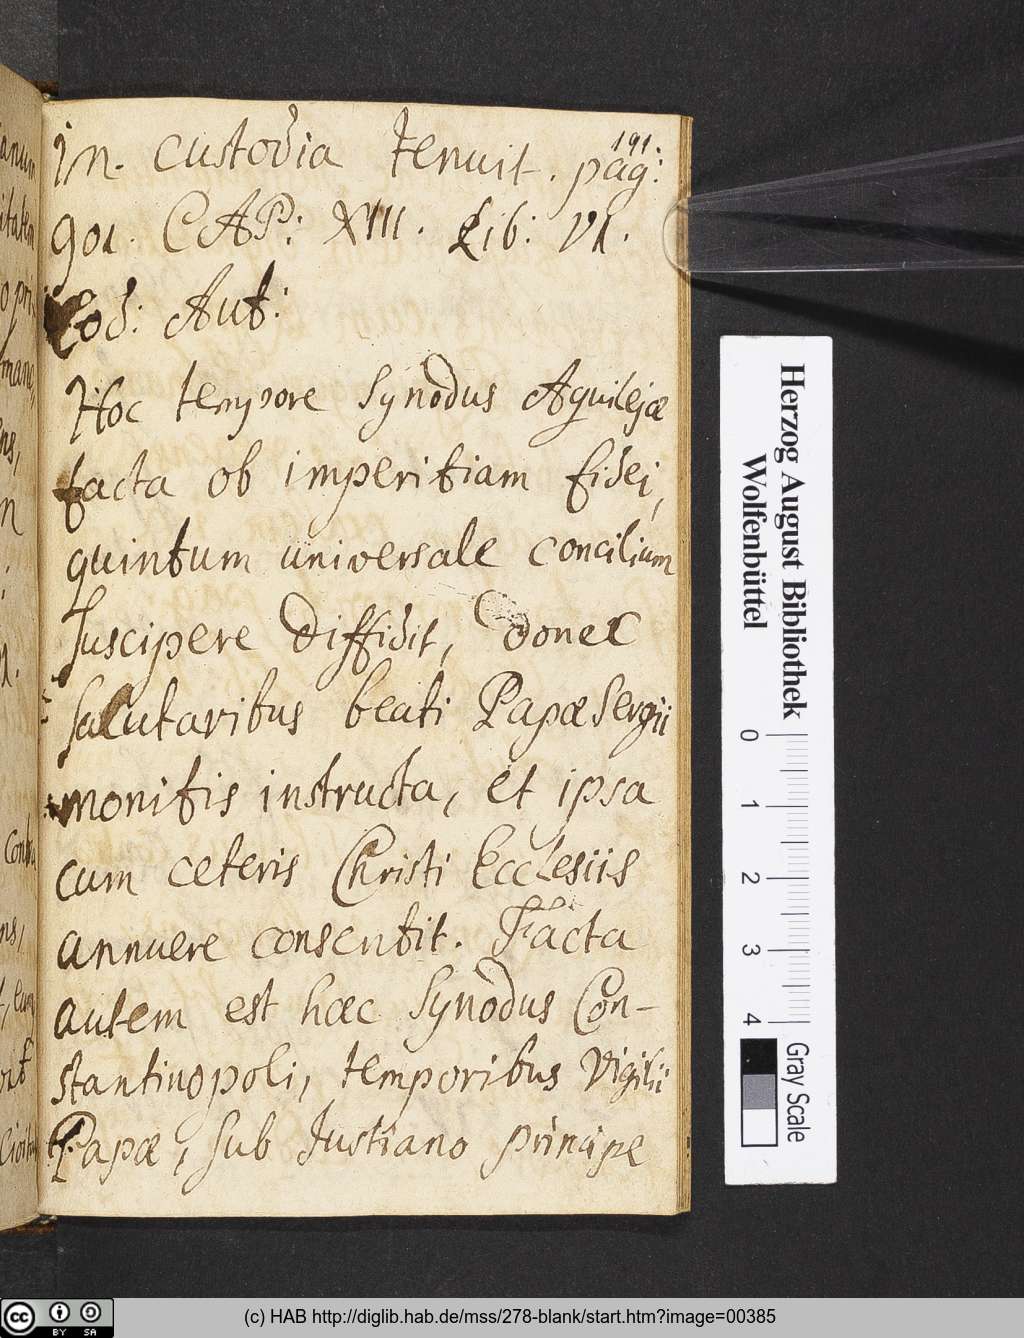 191.
in custodia tenuit. pag:
901. CAP: XIII. Lib: VI.
Eod: Aut:
Hoc tempore Synodus Aquilejæ
facta ob imperitiam fidei,
quintum universale concilium
suscipere diffidit, donec
salutaribus beati Papæ Sergii
monitis instructa, et ipsa
cum ceteris Christi Ecclesiis
annuere consentit. Facta
autem est hæc Synodus Con-
stantinopoli, temporibus Vigilii
Papæ, sub Justiano principe
Herzog August Bibliothek
Wolfenbüttel
0 1 2 3 4
Gray Scale
cc BY SA
(c) HAB http://diglib.hab.de/mss/278-blank/start.htm?image=00385